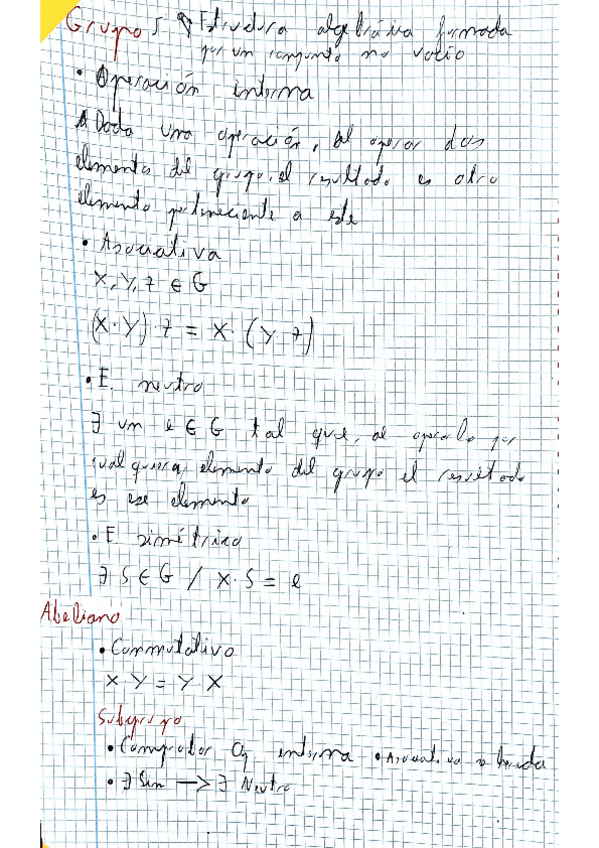 Grupo Estructura algebráica formada
por un conjunto no vacío
• Operación interna
Dada una operación, al operar dos
elementos del grupo, el resultado es otro
elemento perteneciente a este
• Asociativa
X, Y, z ∈ G
(X·Y)·z = X·(Y·z)
• E. neutro
∃ un e ∈ G tal que, al operarlo por
cualquiera, elemento del grupo el resultado
es ese elemento
• E simétrico
∃ S ∈ G / X·S = e
Abeliano
• Conmutativo
X·Y = Y·X
Subgrupo
• Comprobar Op interna • Asociativa se hereda
• ∃ Sim —> ∃ Neutro